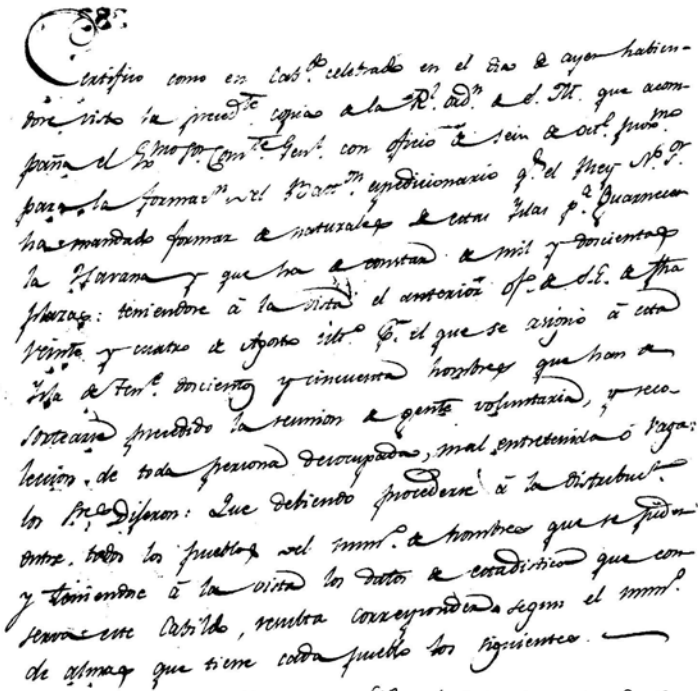 Certifico como en Cab.do celebrado en el dia de ayer habien-
dose visto la preced.te copia de la R.l ord.n de S. M. que acom-
paña el Exmo Sor Com.te Gen.l con oficio de seis de oct.e prox.mo
para la formac.n del Batt.on expedicionario q.e el Rey N.o S.or
ha mandado formar de naturales de estas Yslas p.a Guarnecer
la Havana y que ha de constar de mil y doscientas
Plazas: teniendose à la vista el anterior of.o de S.E. de fha
veinte y cuatro de Agosto ult.o p.r el que se asignó á esta
Ysla de Ten.fe doscientos y cincuenta hombres que han de
sortearse precedido la reunion de gente voluntaria, y reco-
leccion de toda persona desocupada, mal entretenida ó vaga:
los Sres Dijeron: Que debiendo procederse à la distribuc.n
entre todos los pueblos del num.o de hombres que se piden
y teniendose à la vista los datos de estadistica que con
serva este Cabildo, resulta corresponder segun el num.o
de almas que tiene cada pueblo los siguientes.